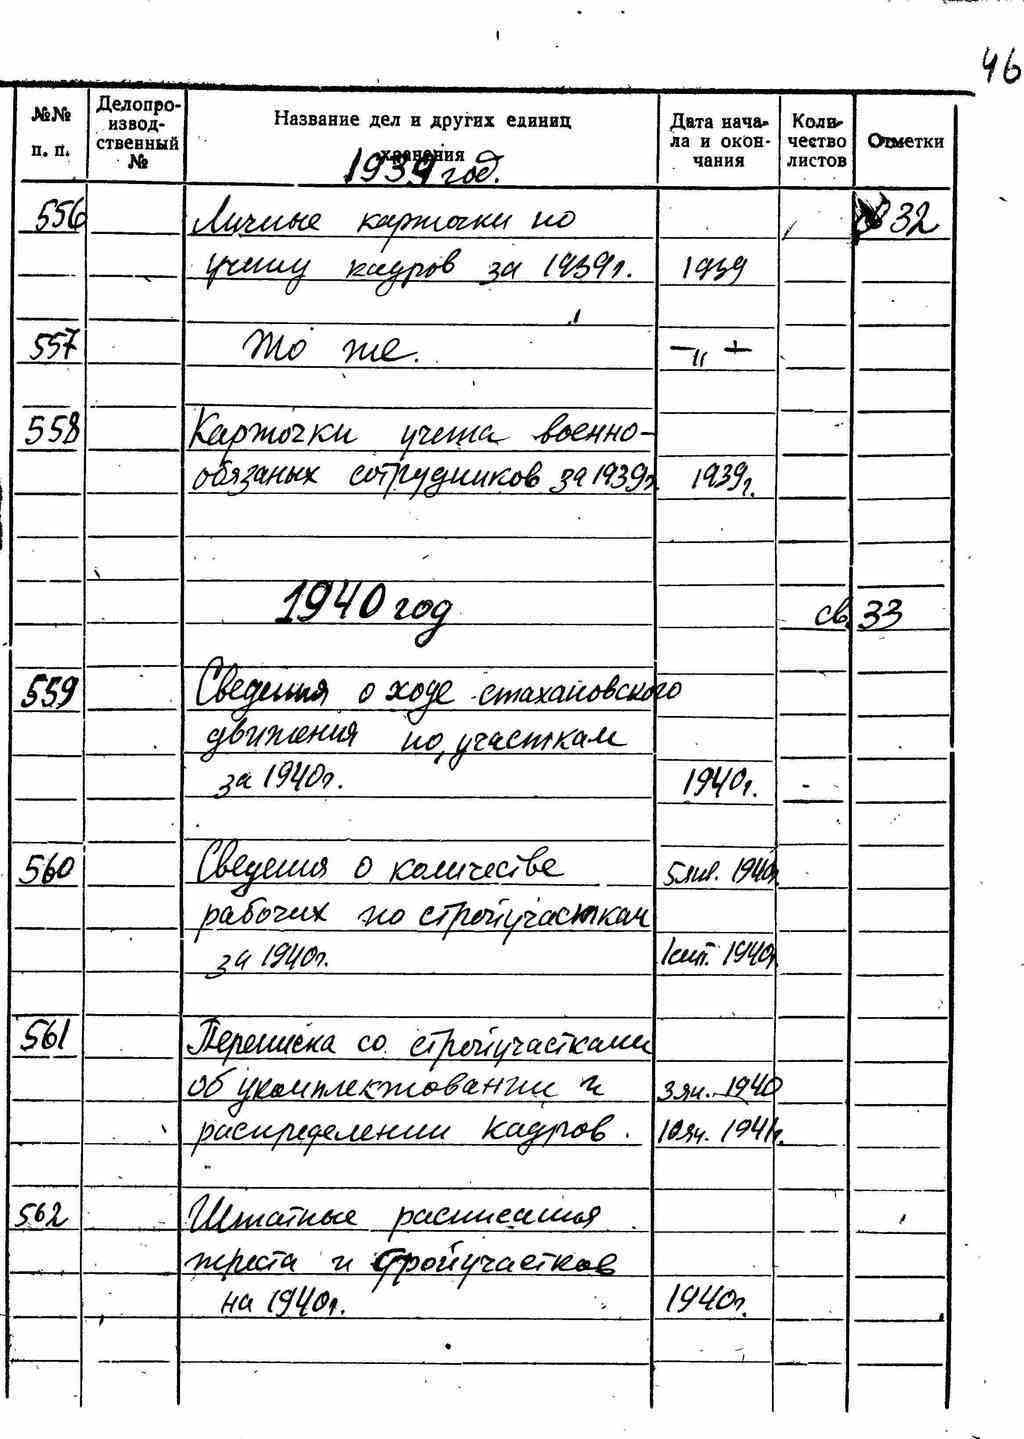 46
№№ п. п.
Делопро-
извод-
ственный
№
Название дел и других единиц
хранения
Дата нача-
ла и окон-
чания
Коли-
чество
листов
Отметки
1939 год.
556 Личные карточки по 32
учету кадров за 1939г. 1939
557 То же. — " —
558 Карточки учета военно-
обязаных сотрудников за 1939г. 1939г.
1940 год св. 33
559 Сведения о ходе стахановского
движения по участкам
за 1940г. 1940г. -
560 Сведения о количестве 5 янв. 1940г.
рабочих по стройучасткам
за 1940г. 1940г.
561 Переписка со стройучастками
об укомплектовании и 3 ян. 1940
распределении кадров. 10 ян. 1941г.
562 Штатные расписания
треста и стройучастков
на 1940г. 1940г.